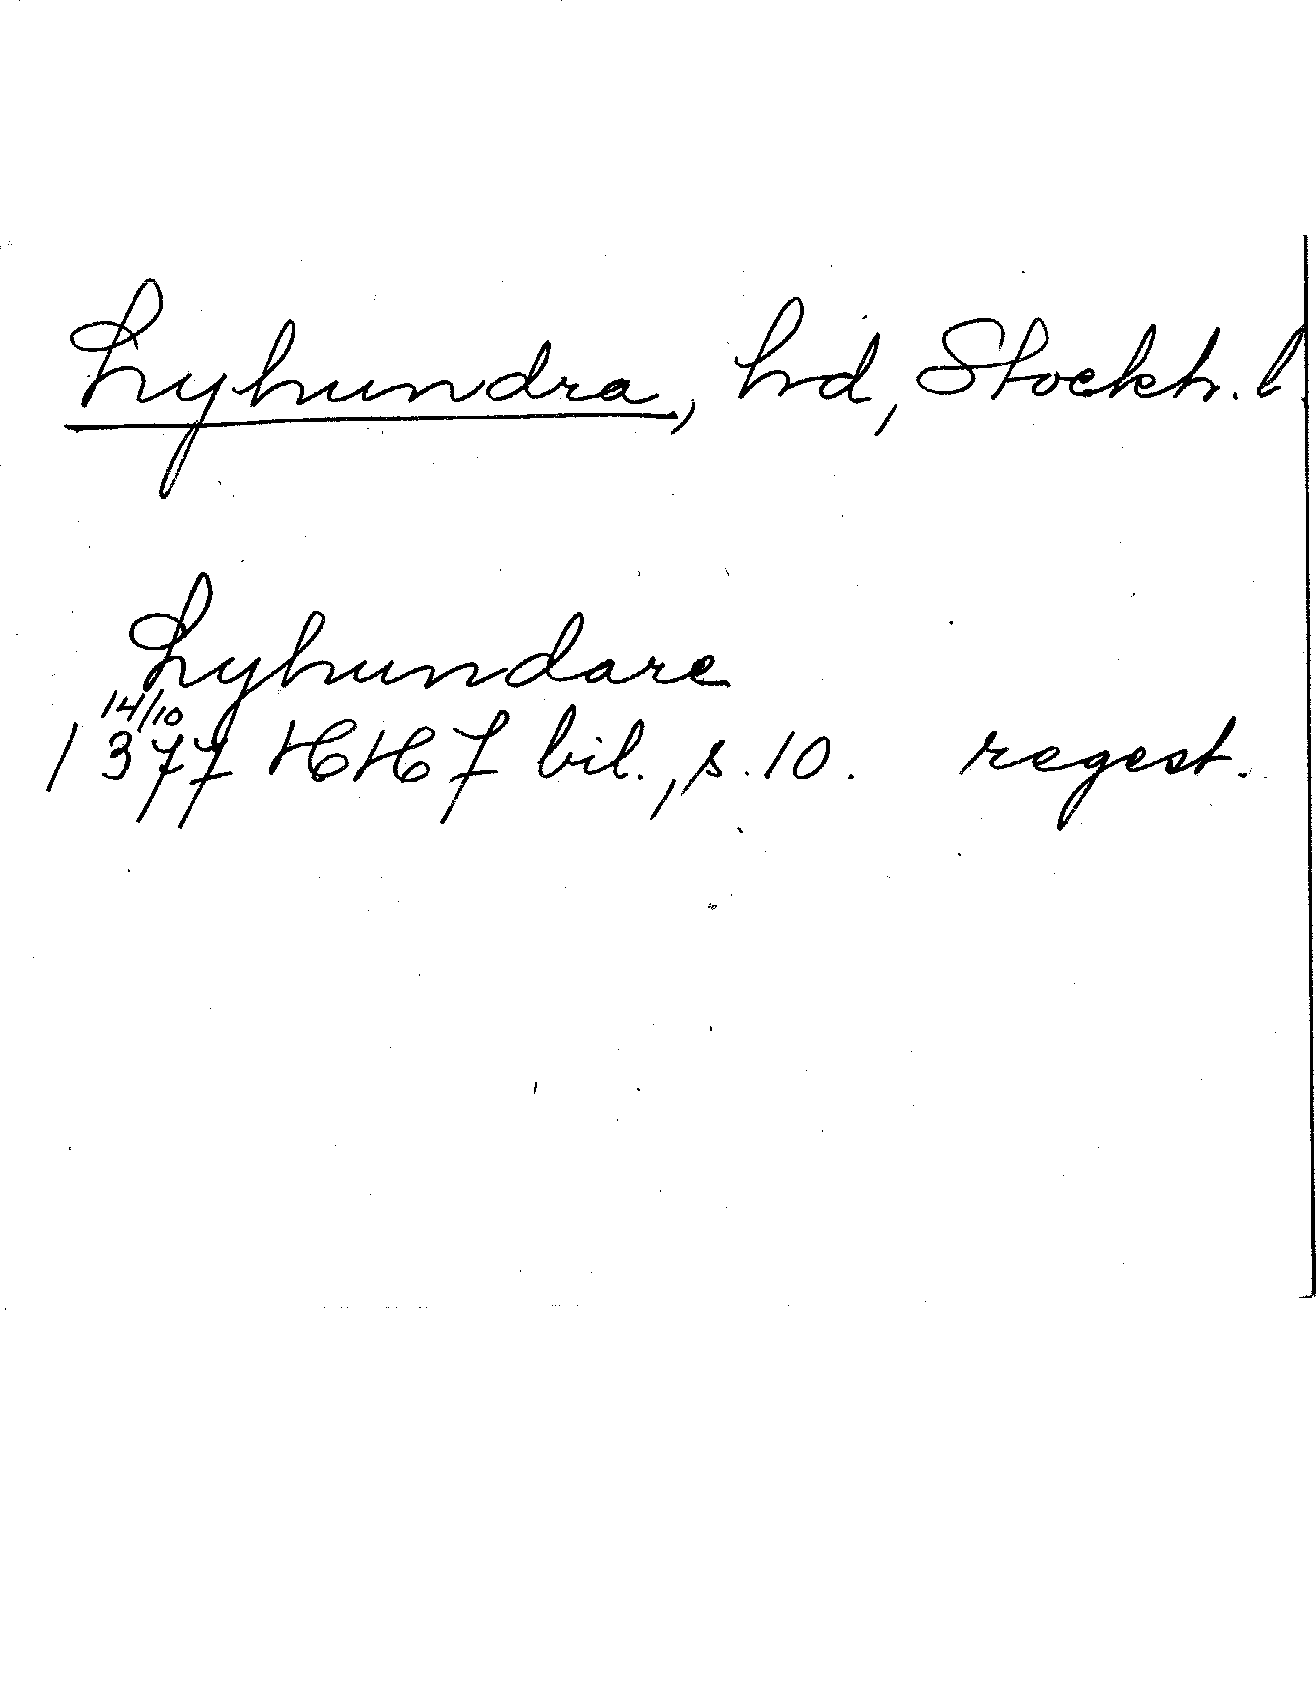 Lyhundra, hd, Stockh. l.
Lyhundare
14/10
1377 HH 7 bil., s. 10. regest.